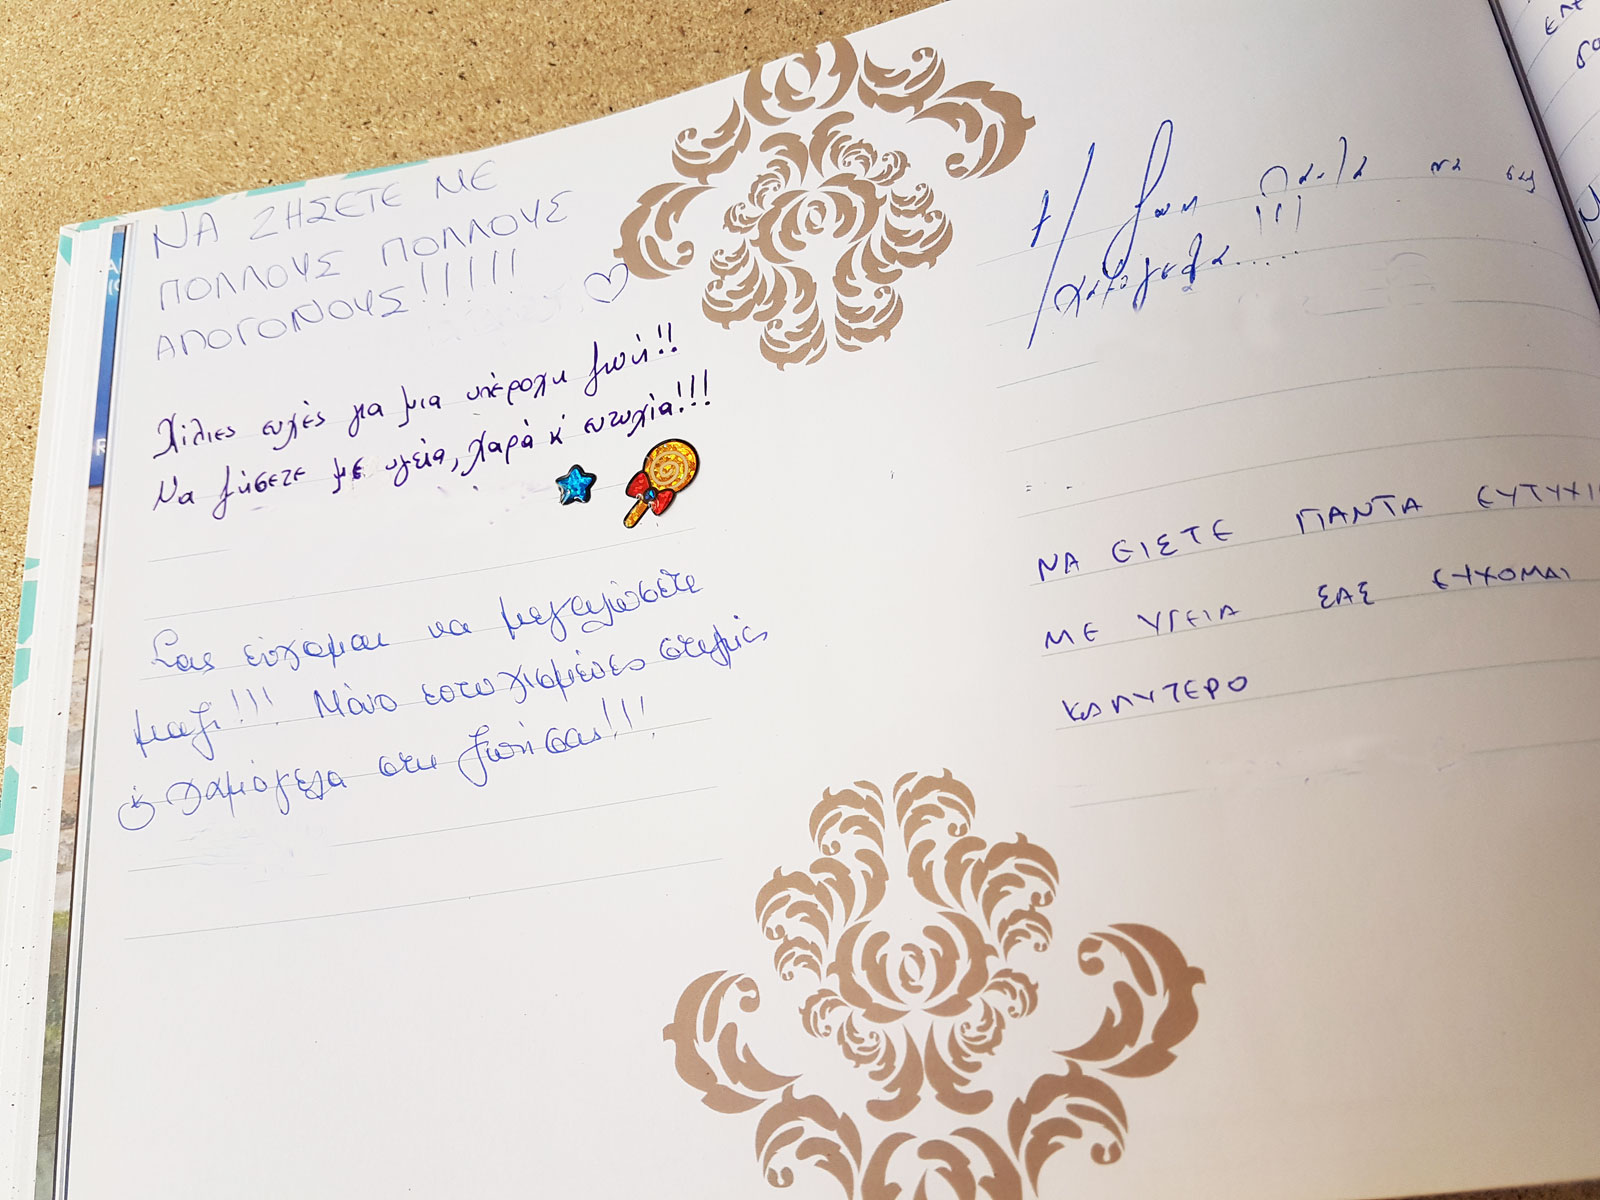 ΝΑ ΖΗΣΕΤΕ ΜΕ
ΠΟΛΛΟΥΣ ΠΟΛΛΟΥΣ
ΑΠΟΓΟΝΟΥΣ!!!!!
Χίλιες ευχές για μια υπέροχη ζωή!!
Να ζήσετε με υγεία, χαρά κ' ευτυχία!!!
Σας εύχομαι να μεγαλώσετε
μαζί!!! Μόνο ευτυχισμένες στιγμές
χαμόγελα στη ζωή σας!!!
Η ζωη Παντα να σας
χαμογελα.....!!!
ΝΑ ΕΙΣΤΕ ΠΑΝΤΑ ΕΥΤΥΧΙ
ΜΕ ΥΓΕΙΑ ΣΑΣ ΕΥΧΟΜΑΙ
ΚΑΛΥΤΕΡΟ